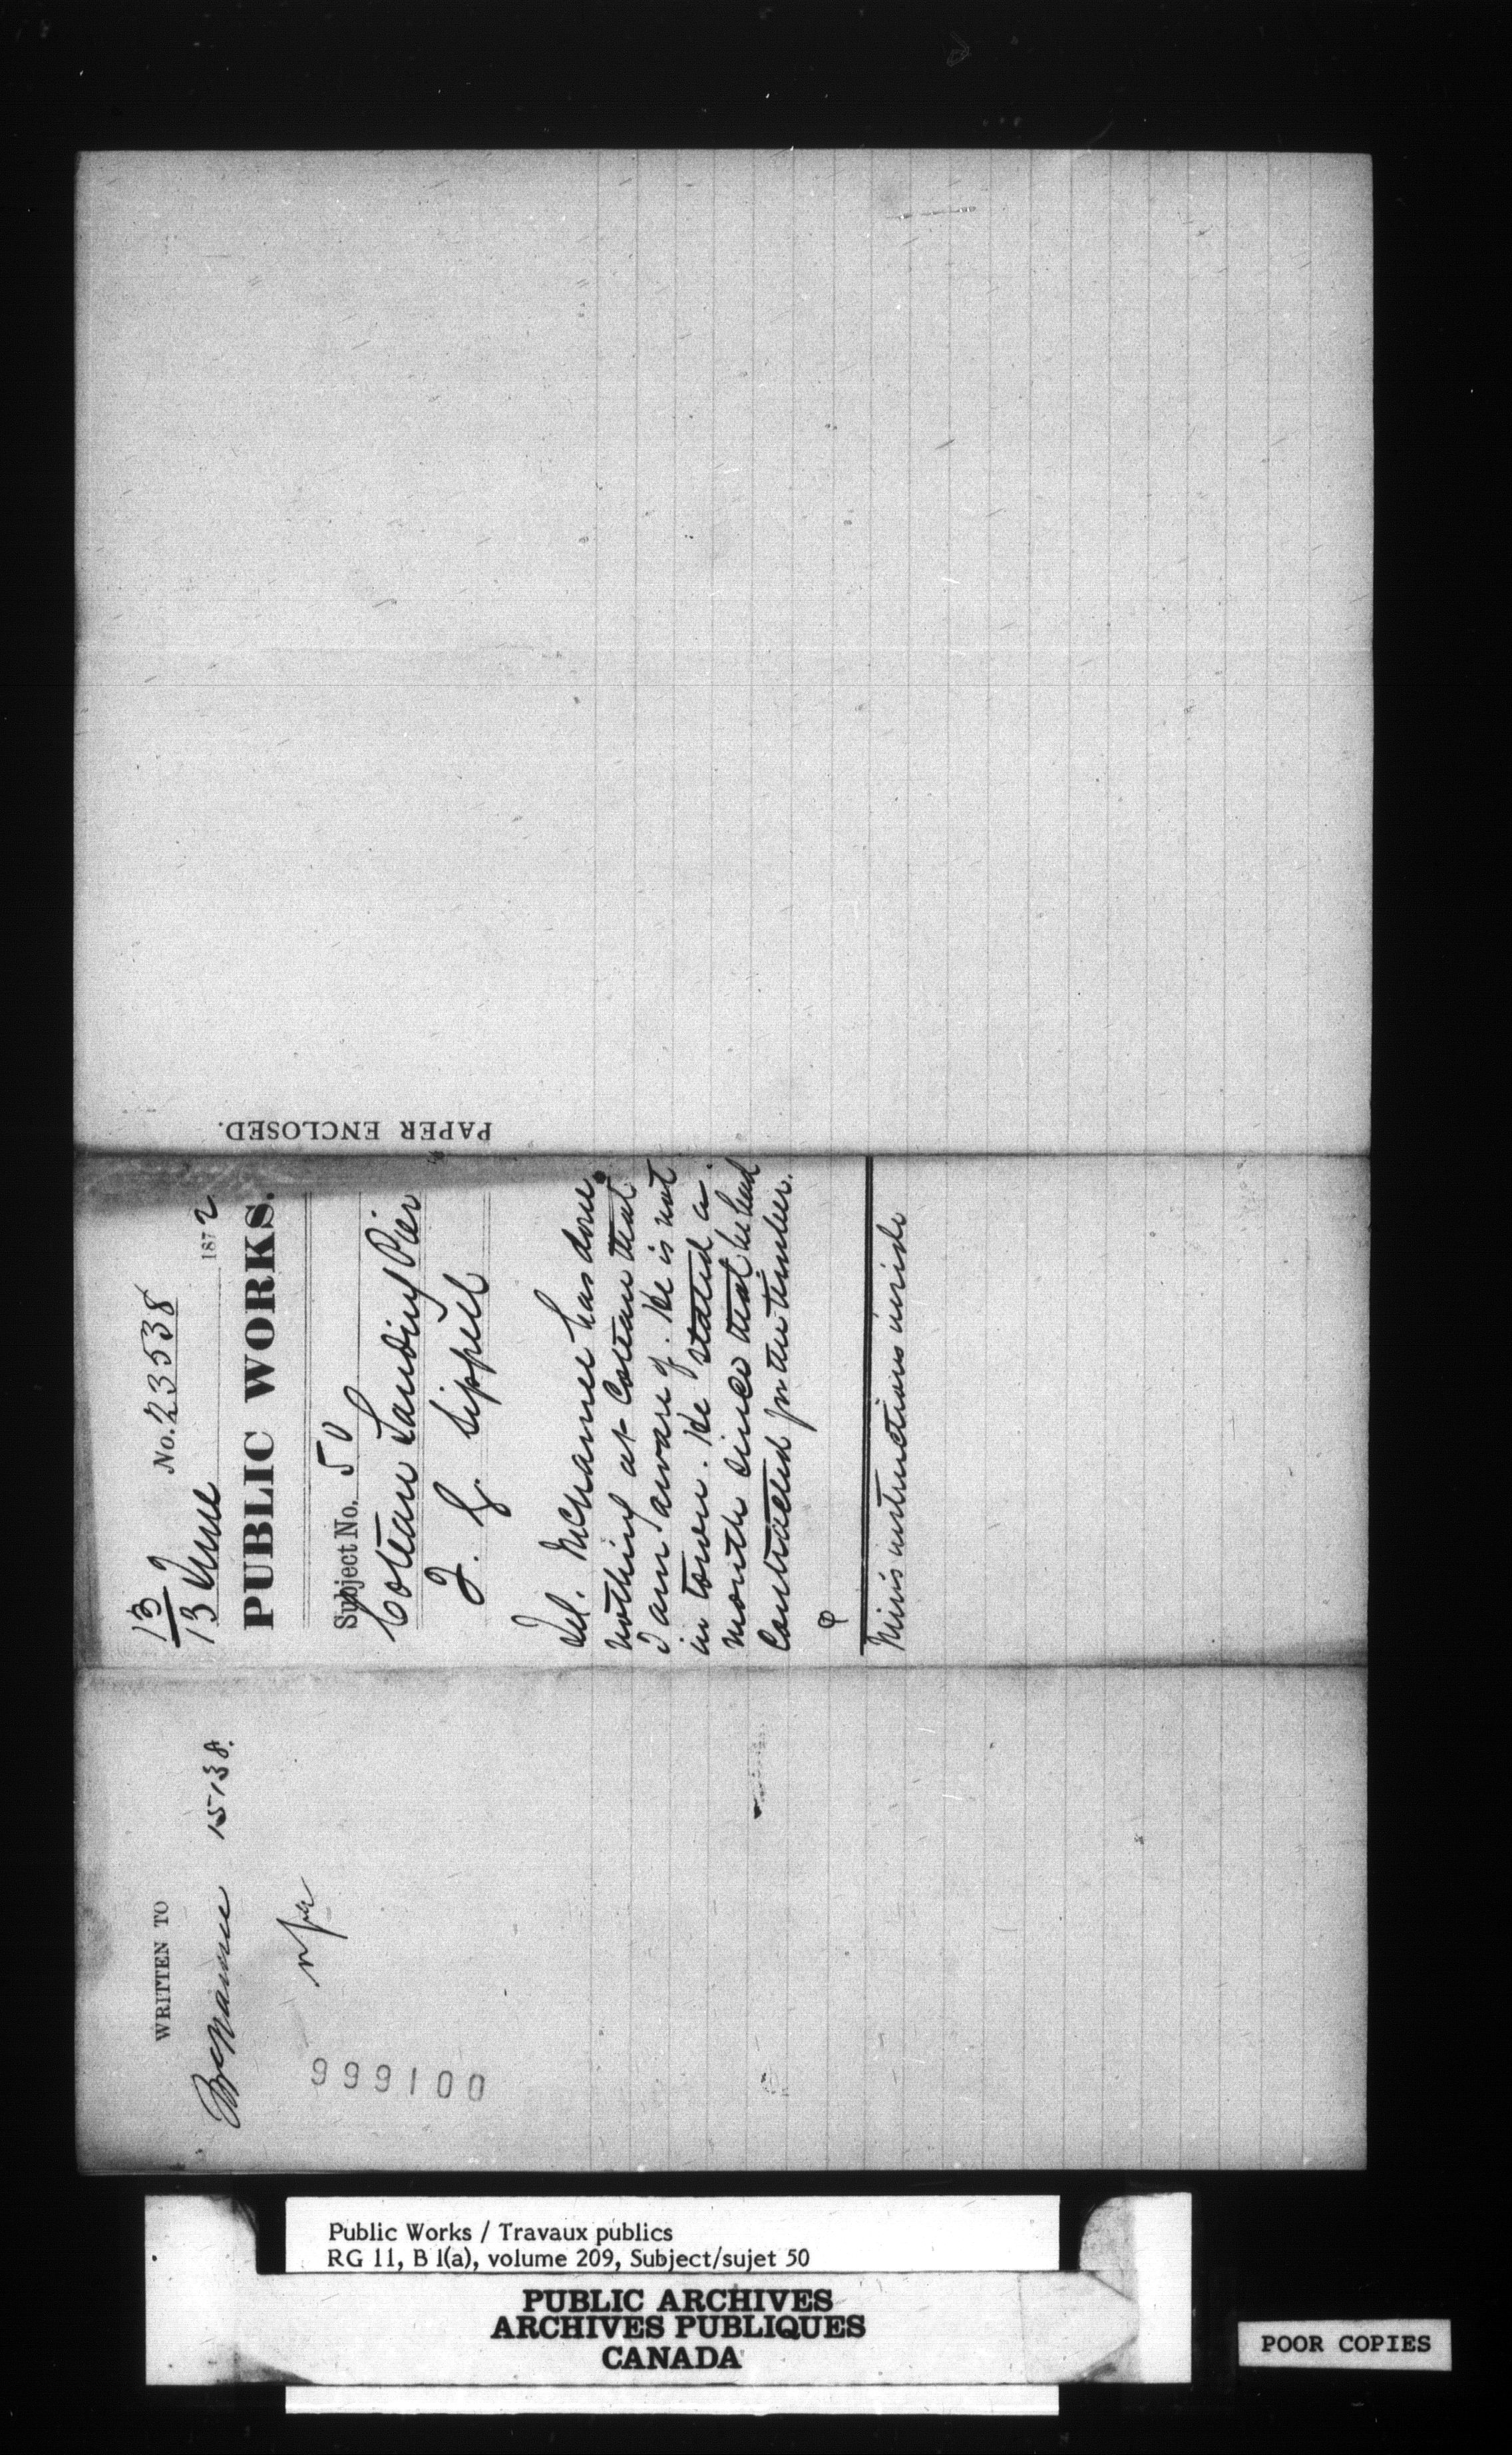 13
13 June 1872
No. 23538
PUBLIC WORKS.
Subject No. 50
Coteau Landing Pier
J. G. Sippell
Tel. McNamee has done
nothing at Coteau that
I am aware of. He is not
in town. He stated a
month since that he had
contracted for the timber.
Mins instructions inside
PAPER ENCLOSED.
WRITTEN TO
McNamee 15138.
999100
Public Works / Travaux publics
RG 11, B 1(a), volume 209, Subject/sujet 50
PUBLIC ARCHIVES
ARCHIVES PUBLIQUES
CANADA
POOR COPIES